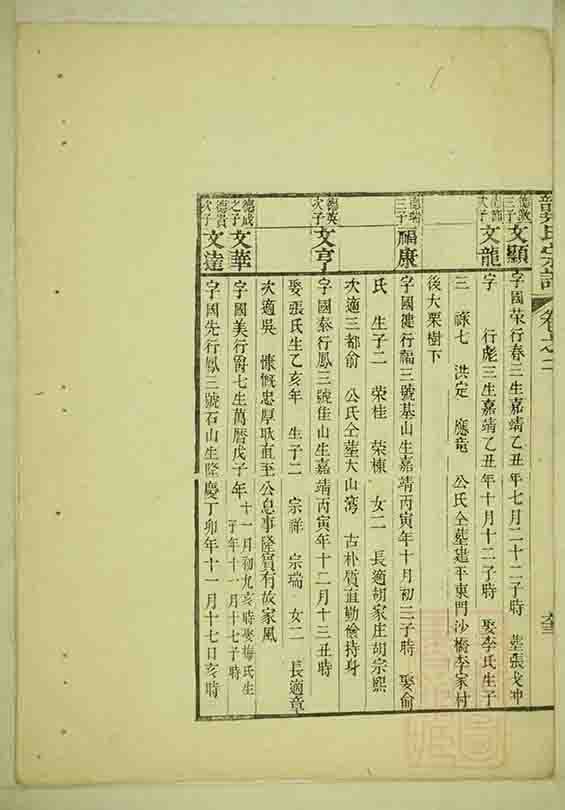 氏宗譜 卷之二
三子 文顯 字國荣行春三生嘉靖乙丑年七月二十二子時 塟張戈冲
次子 文龍 字 行彪三生嘉靖乙丑年十月十二子時 娶李氏生子
三 祿七 洪定 應竜 公氏仝塟建平東門沙橋李家村
後大栗樹下
德瑞三子 福康 字國健行福三號基山生嘉靖丙寅年十月初三子時 娶俞
氏 生子二 荣桂 荣棟 女二 長適胡家庄胡宗熙
次適三都俞 公氏仝塟大山灣 古朴質直勤儉持身
德英次子 文亨 字國泰行鳳三號佳山生嘉靖丙寅年十二月十三丑時
娶張氏生乙亥年 生子二 宗祥 宗瑞 女二 長適章
次適吳 慷慨忠厚耿直至公息事隆賢有故家風
德成之子 文華 字國美行爵七生萬曆戊子年十一月初九亥時娶梅氏生
子年十一月十七子時
德貴次子 文達 字國先行鳳三號石山生隆慶丁卯年十一月十七日亥時